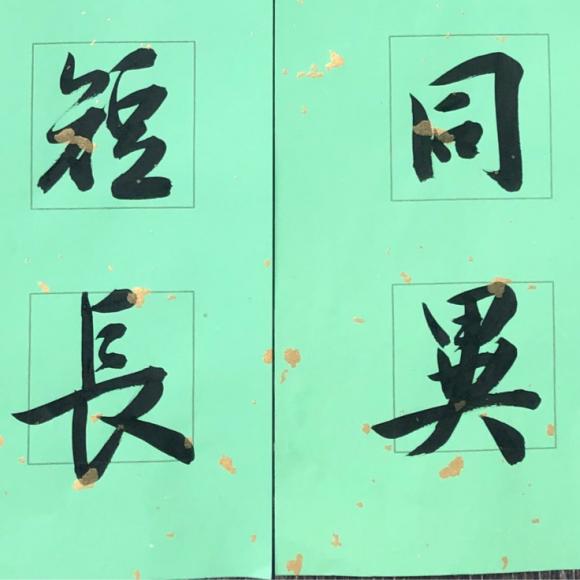 同異
短長